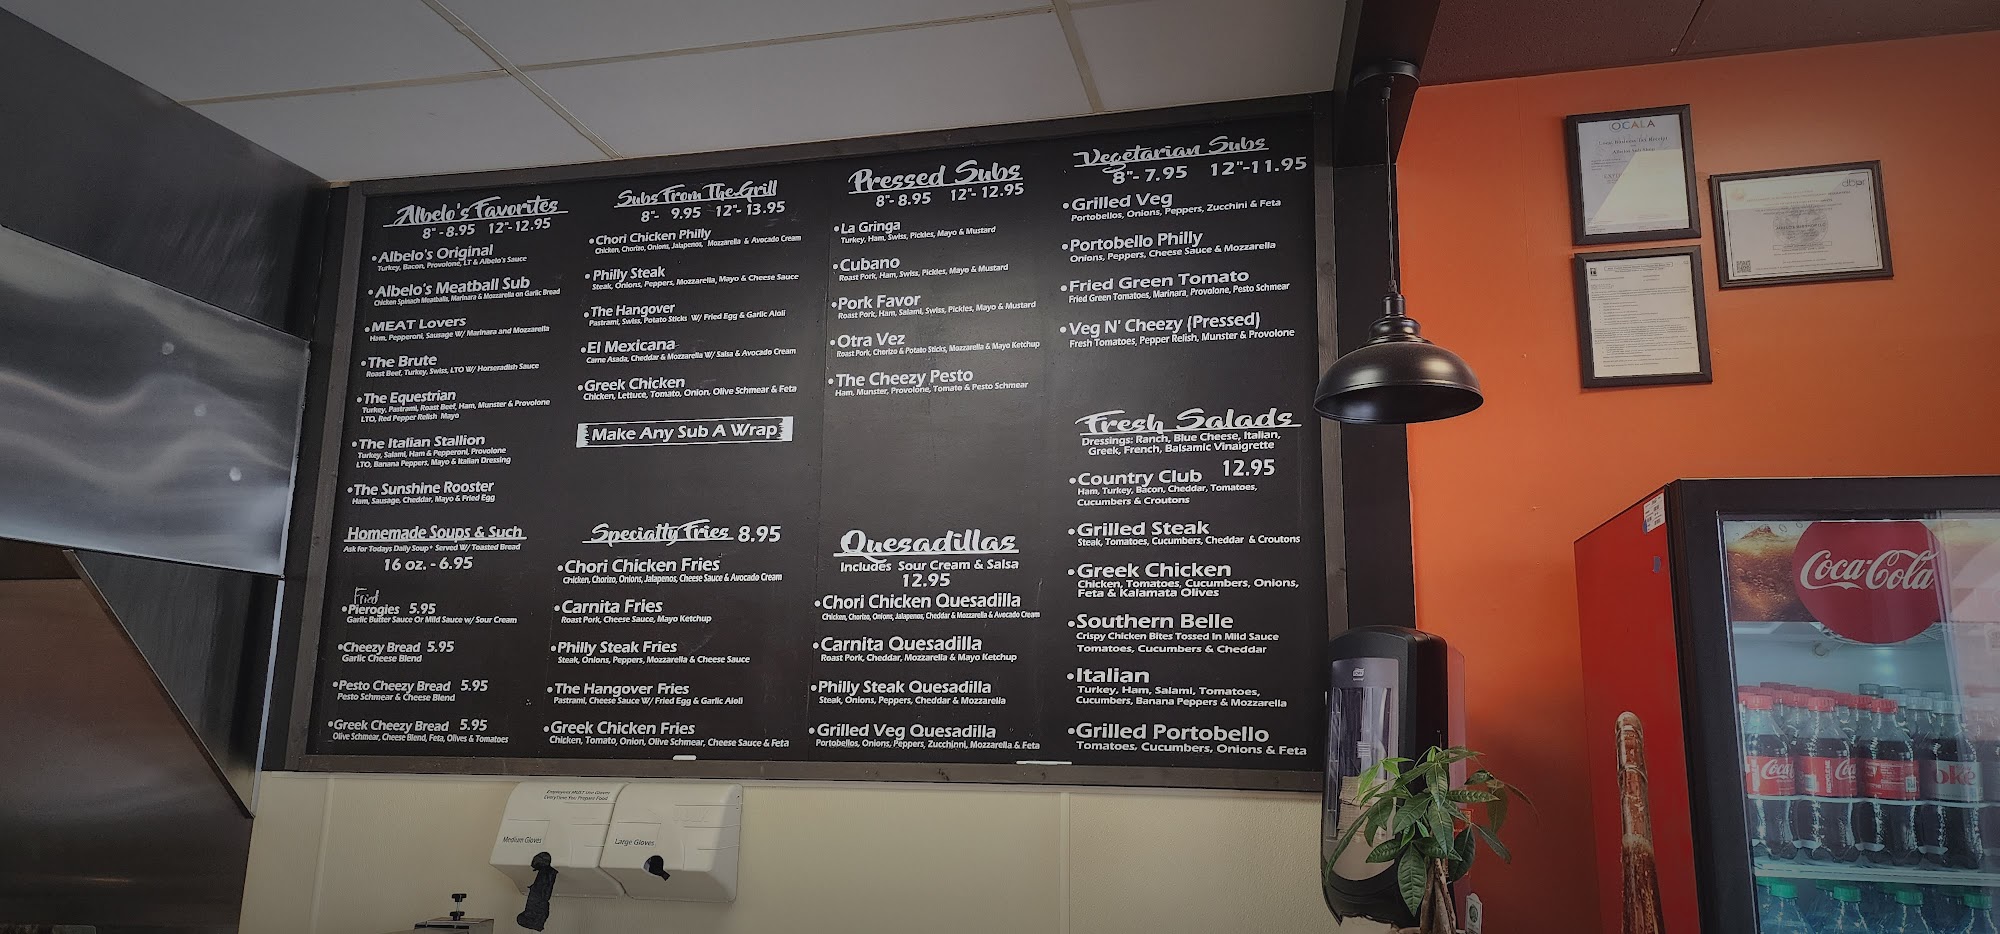 Albelo's Favorites
8" - 8.95 12"- 12.95
•Albelo's Original
Turkey, Bacon, Provolone, LT & Albelo's Sauce
•Albelo's Meatball Sub
Chicken Spinach Meatballs, Marinara & Mozzarella on Garlic Bread
•MEAT Lovers
Ham, Pepperoni, Sausage W/ Marinara and Mozzarella
•The Brute
Roast Beef, Turkey, Swiss, LTO W/ Horseradish Sauce
•The Equestrian
Turkey, Pastrami, Roast Beef, Ham, Munster & Provolone
LTO, Red Pepper Relish Mayo
•The Italian Stallion
Turkey, Salami, Ham & Pepperoni, Provolone
LTO, Banana Peppers, Mayo & Italian Dressing
•The Sunshine Rooster
Ham, Sausage, Cheddar, Mayo & Fried Egg
Homemade Soups & Such
Ask for Todays Daily Soup* Served W/ Toasted Bread
16 oz. - 6.95
Fried
•Pierogies 5.95
Garlic Butter Sauce Or Mild Sauce w/ Sour Cream
•Cheezy Bread 5.95
Garlic Cheese Blend
•Pesto Cheezy Bread 5.95
Pesto Schmear & Cheese Blend
•Greek Cheezy Bread 5.95
Olive Schmear, Cheese Blend, Feta, Olives & Tomatoes
Subs From The Grill
8"- 9.95 12"- 13.95
•Chori Chicken Philly
Chicken, Chorizo, Onions, Jalapenos, Mozzarella & Avocado Cream
•Philly Steak
Steak, Onions, Peppers, Mozzarella, Mayo & Cheese Sauce
•The Hangover
Pastrami, Swiss, Potato Sticks W/ Fried Egg & Garlic Aioli
•El Mexicana
Carne Asada, Cheddar & Mozzarella W/ Salsa & Avocado Cream
•Greek Chicken
Chicken, Lettuce, Tomato, Onion, Olive Schmear & Feta
Make Any Sub A Wrap
Specialty Fries 8.95
•Chori Chicken Fries
Chicken, Chorizo, Onions, Jalapenos, Cheese Sauce & Avocado Cream
•Carnita Fries
Roast Pork, Cheese Sauce, Mayo Ketchup
•Philly Steak Fries
Steak, Onions, Peppers, Mozzarella & Cheese Sauce
•The Hangover Fries
Pastrami, Cheese Sauce W/ Fried Egg & Garlic Aioli
•Greek Chicken Fries
Chicken, Tomato, Onion, Olive Schmear, Cheese Sauce & Feta
Pressed Subs
8"- 8.95 12"- 12.95
•La Gringa
Turkey, Ham, Swiss, Pickles, Mayo & Mustard
•Cubano
Roast Pork, Ham, Swiss, Pickles, Mayo & Mustard
•Pork Favor
Roast Pork, Ham, Salami, Swiss, Pickles, Mayo & Mustard
•Otra Vez
Roast Pork, Chorizo & Potato Sticks, Mozzarella & Mayo Ketchup
•The Cheezy Pesto
Ham, Munster, Provolone, Tomato & Pesto Schmear
Quesadillas
Includes Sour Cream & Salsa
12.95
•Chori Chicken Quesadilla
Chicken, Chorizo, Onions, Jalapenos, Cheddar & Mozzarella & Avocado Cream
•Carnita Quesadilla
Roast Pork, Cheddar, Mozzarella & Mayo Ketchup
•Philly Steak Quesadilla
Steak, Onions, Peppers, Cheddar & Mozzarella
•Grilled Veg Quesadilla
Portobellos, Onions, Peppers, Zucchinni, Mozzarella & Feta
Vegetarian Subs
8"- 7.95 12"-11.95
•Grilled Veg
Portobellos, Onions, Peppers, Zucchini & Feta
•Portobello Philly
Onions, Peppers, Cheese Sauce & Mozzarella
•Fried Green Tomato
Fried Green Tomatoes, Marinara, Provolone, Pesto Schmear
•Veg N' Cheezy (Pressed)
Fresh Tomatoes, Pepper Relish, Munster & Provolone
Fresh Salads
Dressings: Ranch, Blue Cheese, Italian,
Greek, French, Balsamic Vinaigrette
•Country Club 12.95
Ham, Turkey, Bacon, Cheddar, Tomatoes,
Cucumbers & Croutons
•Grilled Steak
Steak, Tomatoes, Cucumbers, Cheddar & Croutons
•Greek Chicken
Chicken, Tomatoes, Cucumbers, Onions,
Feta & Kalamata Olives
•Southern Belle
Crispy Chicken Bites Tossed In Mild Sauce
Tomatoes, Cucumbers & Cheddar
•Italian
Turkey, Ham, Salami, Tomatoes,
Cucumbers, Banana Peppers & Mozzarella
•Grilled Portobello
Tomatoes, Cucumbers, Onions & Feta
OCALA
Local Business Tax Receipt
dbpr
Coca-Cola
Employees MUST Use Gloves
Everytime You Prepare Food
Medium Gloves
Large Gloves